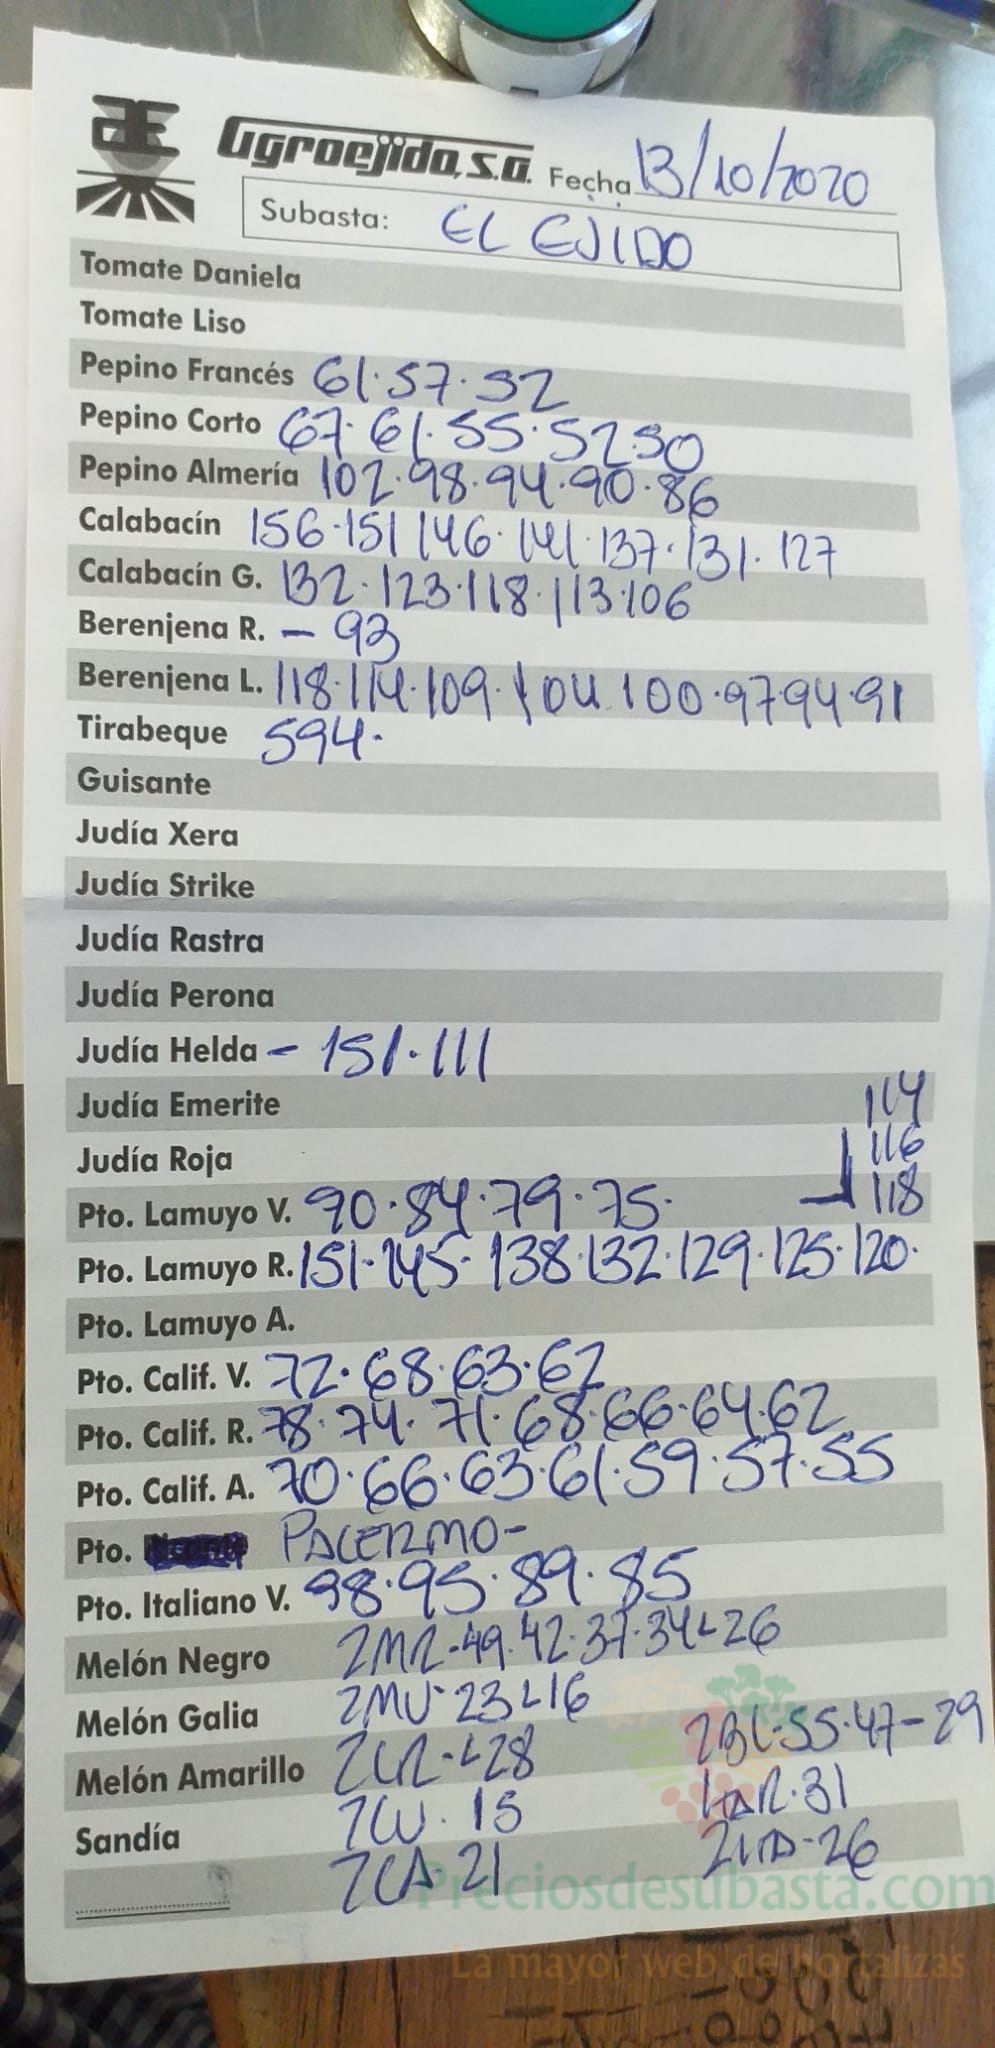 Agroejido, S.A. Fecha 13/10/2020
Subasta: EL EJIDO
Tomate Daniela
Tomate Liso
Pepino Francés 61.57.52
Pepino Corto 67.61.55.52 50
Pepino Almería 102.98.94.90.86
Calabacín 156.151 146.141.137.131.127
Calabacín G. 132.123.118.113.106
Berenjena R. - 93
Berenjena L. 118.114.109.104 100.97 94.91
Tirabeque 594.
Guisante
Judía Xera
Judía Strike
Judía Rastra
Judía Perona
Judía Helda - 151.111
Judía Emerite 114
Judía Roja 116
Pto. Lamuyo V. 90.84.79.75. 118
Pto. Lamuyo R. 151.145.138.132.129.125.120.
Pto. Lamuyo A.
Pto. Calif. V. 72.68.63.62
Pto. Calif. R. 78.74.71.68.66.64.62
Pto. Calif. A. 70.66.63.61.59.57.55
Pto. PALERMO-
Pto. Italiano V. 98.95.89.85
Melón Negro 2MR-49.42.37.34L26
Melón Galia 2MV-23L16
Melón Amarillo 2LR-L28 2BL-55.47-29
Sandía 2LV.15 .31
2LA.21 -26
Preciosdesubasta.com
La mayor web de hortalizas